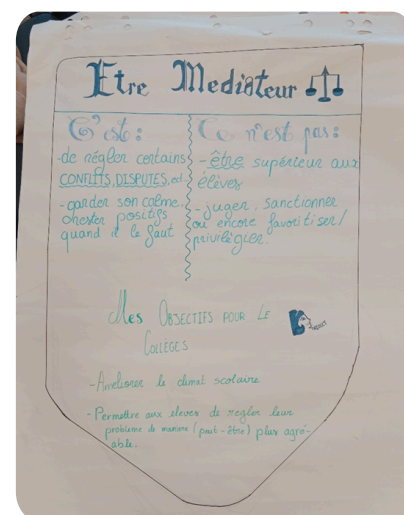 Etre Mediateur
C'est:
-de régler certains
CONFLITS, DISPUTES, ect
-garder son calme,
rester positifs
quand il le faut
Ce n'est pas:
-être supérieur aux
élèves
-juger, sanctionner
ou encore favoritiser/
privilègier.
Mes OBJECTIFS POUR LE
COLLÈGES
-Améliorer le climat scolaire
-Permettre aux eleves de regler leur
problème de manière (peut-être) plus agré-
able.